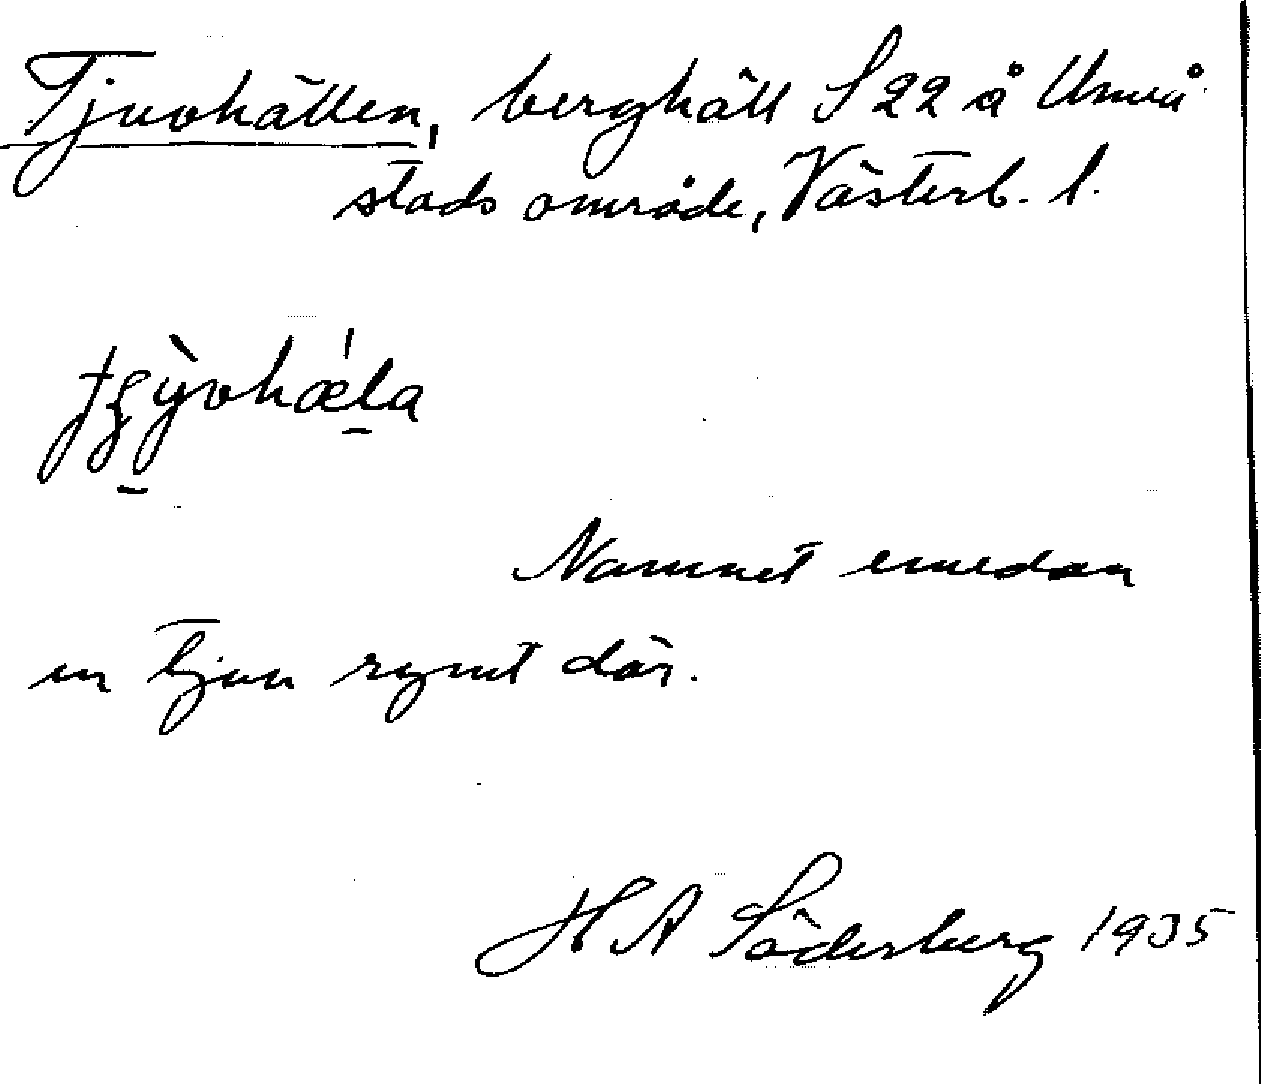 Tjuvhällen, berghäll S 22 å Umeå
stads område, Västerb. l.
Namnet emedan
en tjuv rymt där.
H A Söderberg 1935